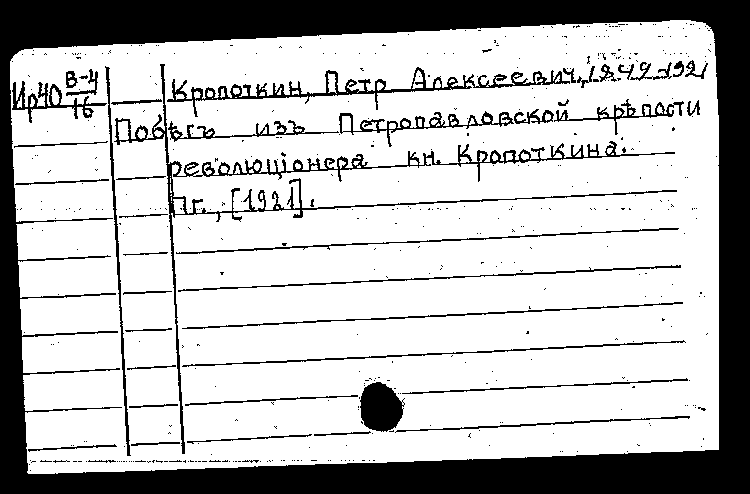 Ир40 В-4/16
Кропоткин, Петр Алексеевич, 1842-1921
Побѣгъ изъ Петропавловской крѣпости
революціонера кн. Кропоткина.
Пг., [1921].